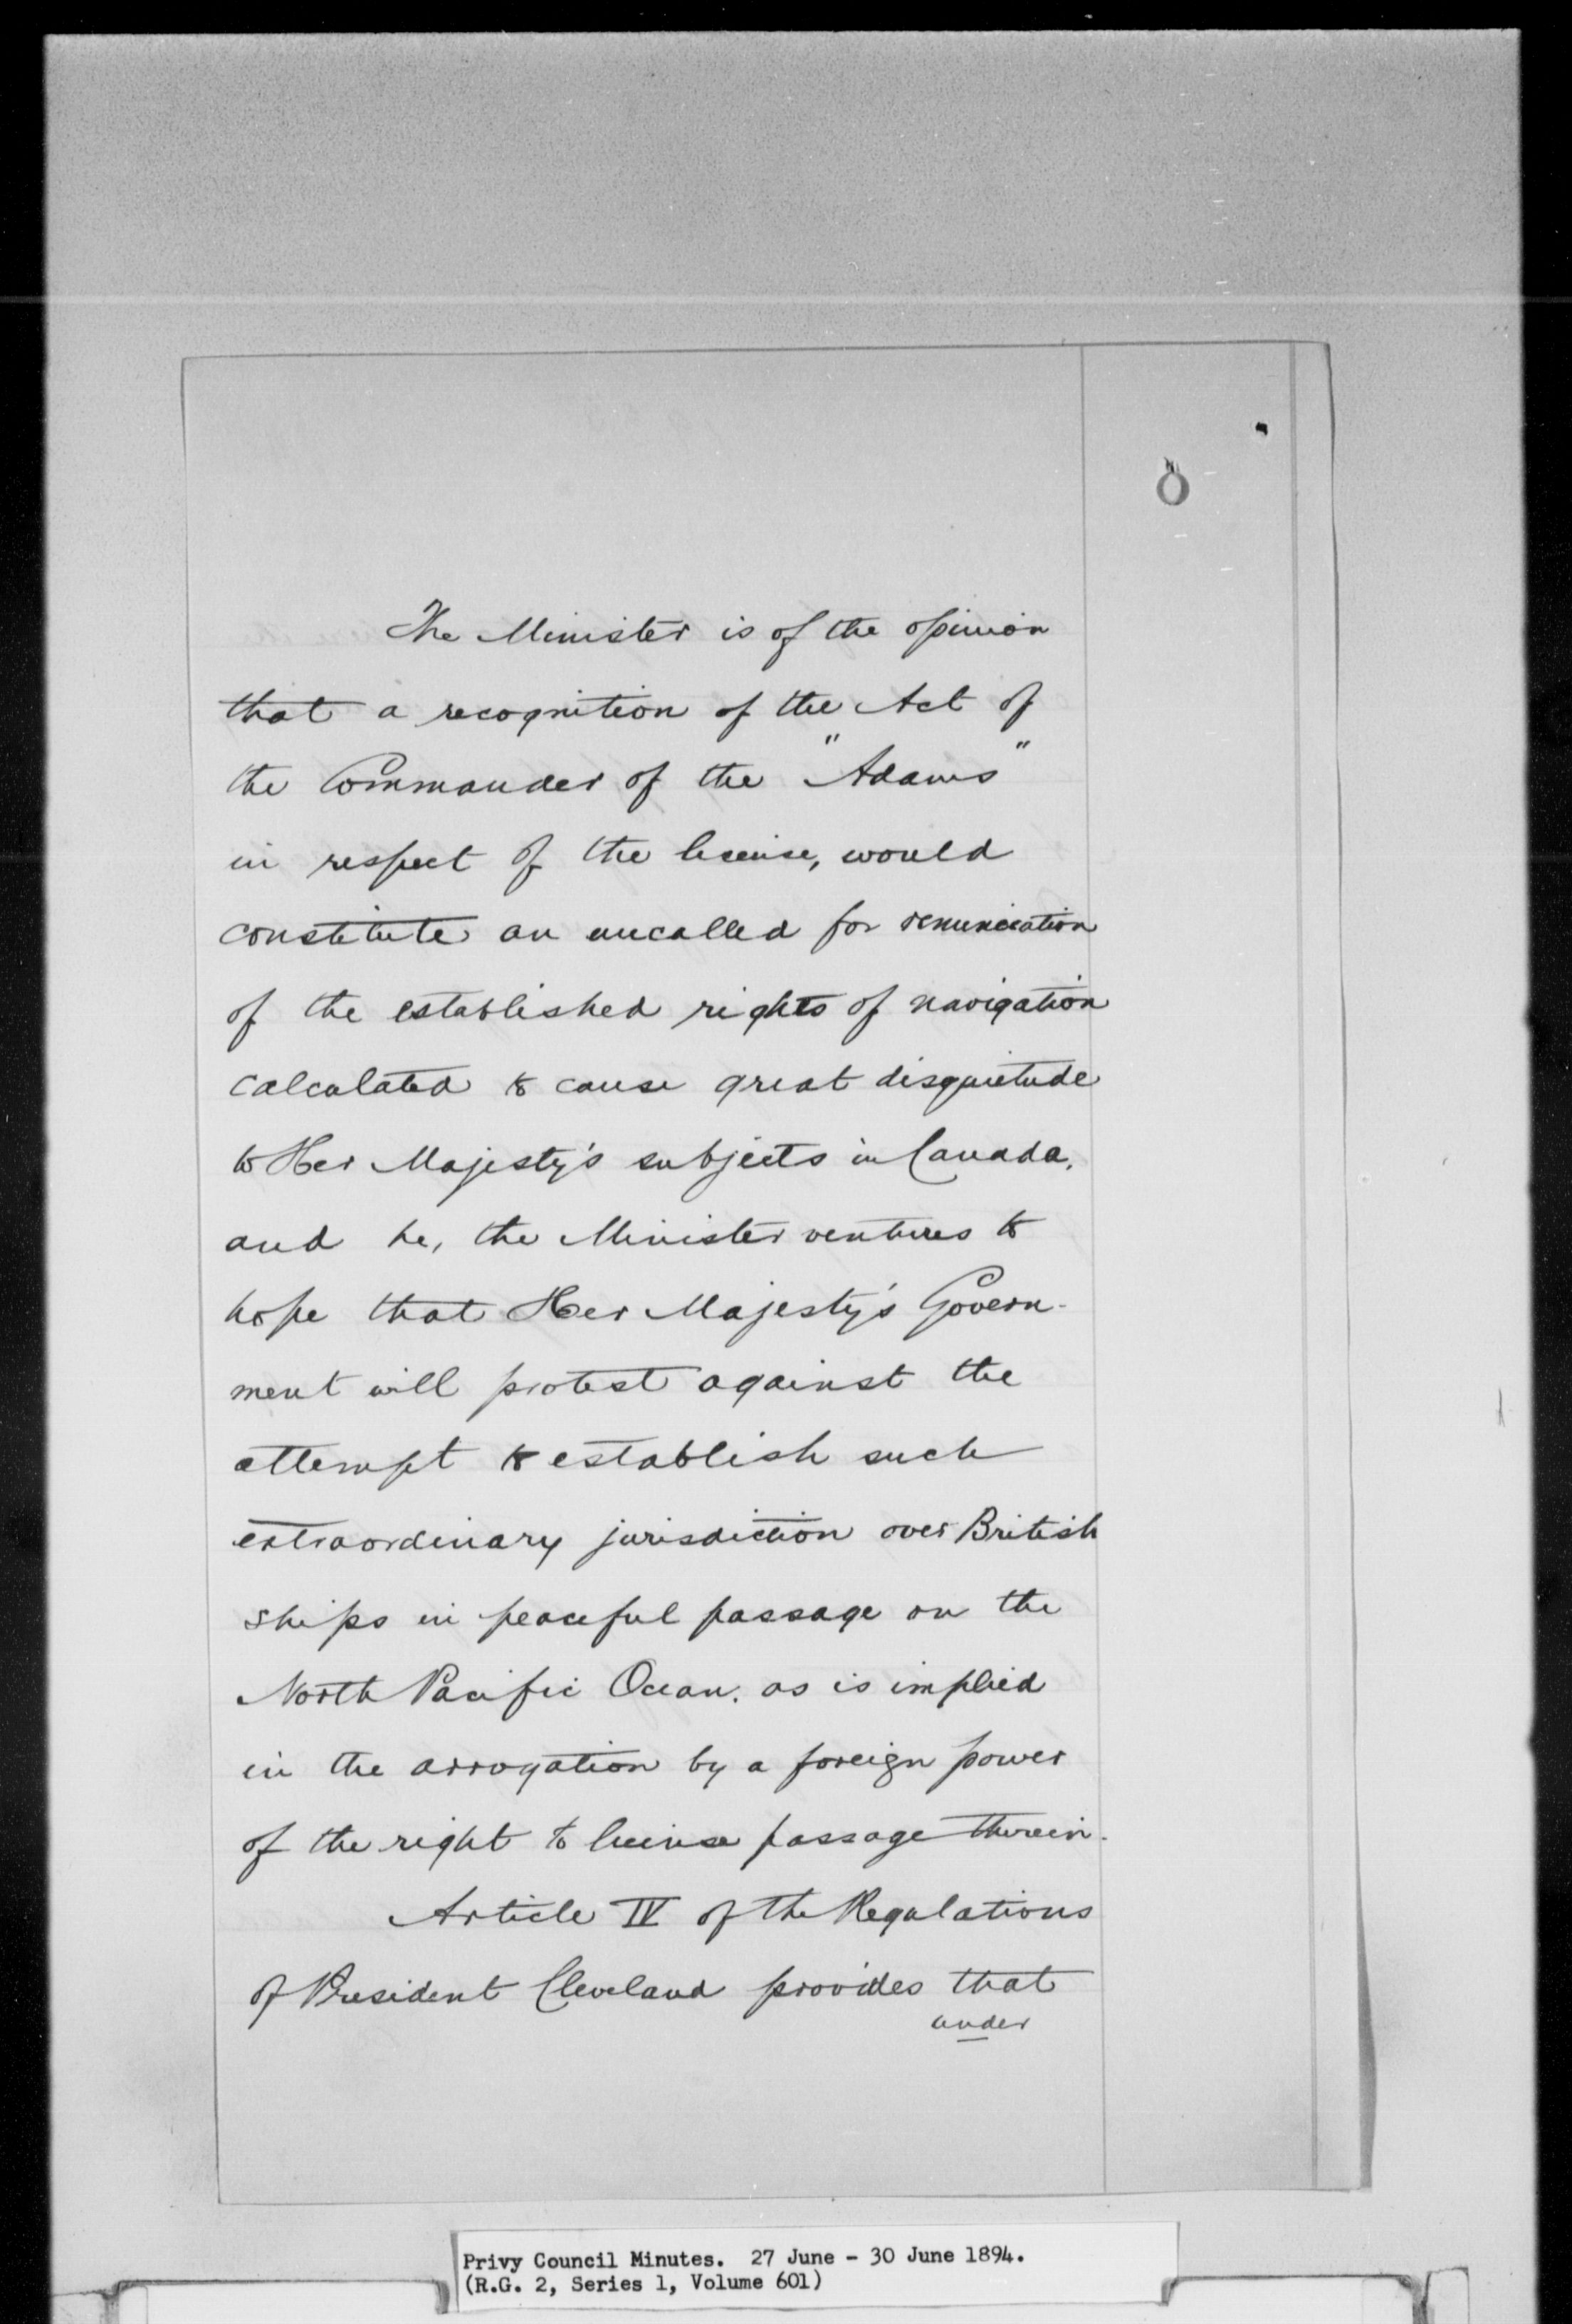 The Minister is of the opinion
that a recognition of the Act of
the Commander of the "Adams"
in respect of the license, would
constitute an uncalled for renunciation
of the established rights of navigation
calculated to cause great disquietude
to Her Majesty's subjects in Canada,
and he, the Minister ventures to
hope that Her Majesty's Govern-
ment will protest against the
attempt to establish such
extraordinary jurisdiction over British
ships in peaceful passage on the
North Pacific Ocean. as is implied
in the arrogation by a foreign power
of the right to license passage therein.
Article IV of the Regulations
of President Cleveland provides that
under
Privy Council Minutes. 27 June - 30 June 1894.
(R.G. 2, Series 1, Volume 601)